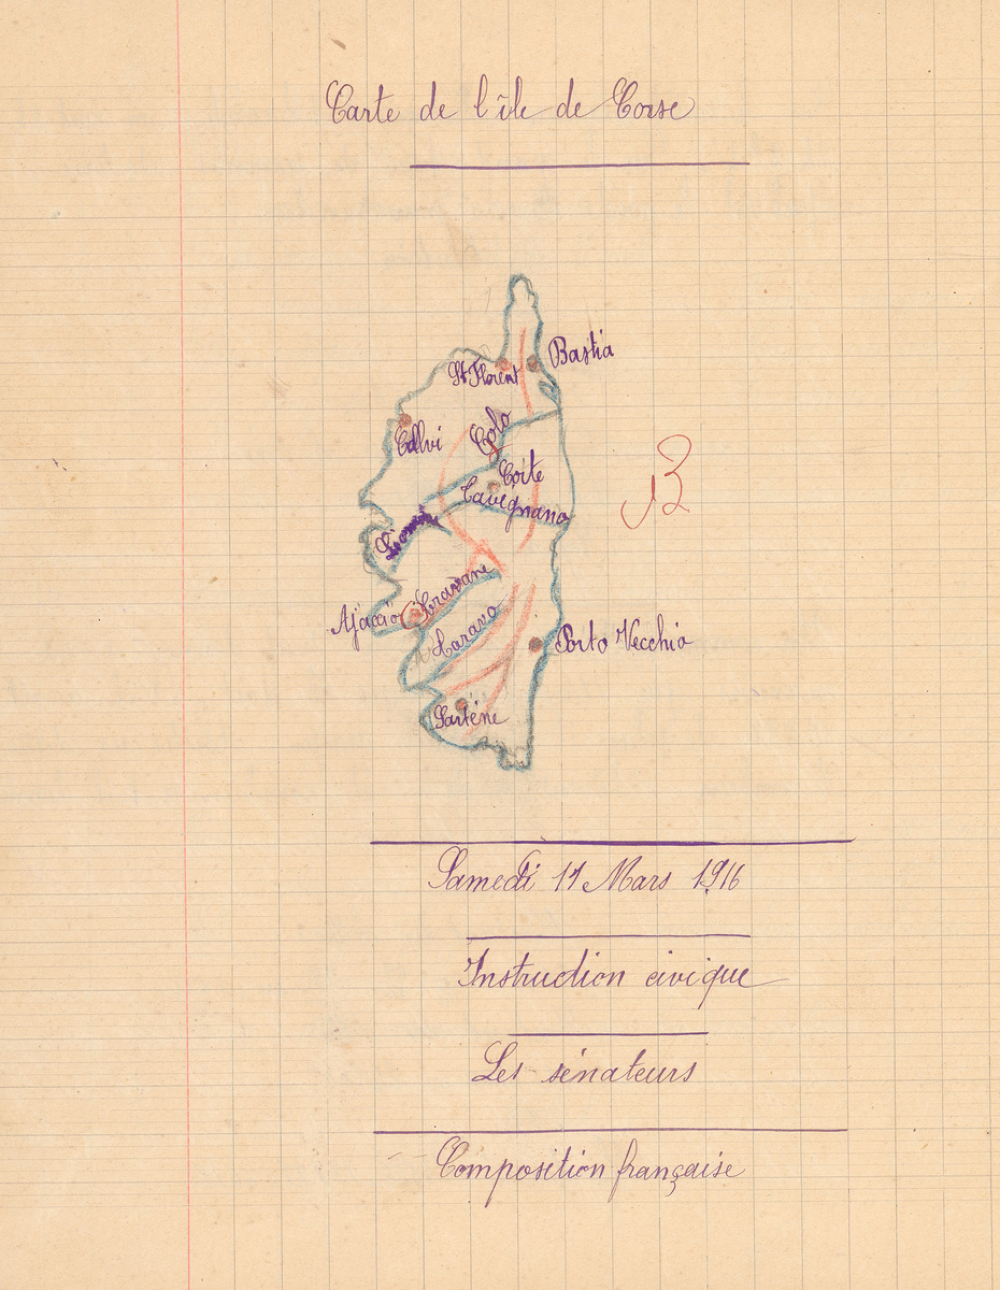 Carte de l'île de Corse
Bastia
St Florent
Calvi
Golo
Corte
Tavignano
Liamone
B
Ajaccio
Gravone
Taravo
Porto Vecchio
Sartène
Samedi 11 Mars 1916
Instruction civique
Les sénateurs
Composition française